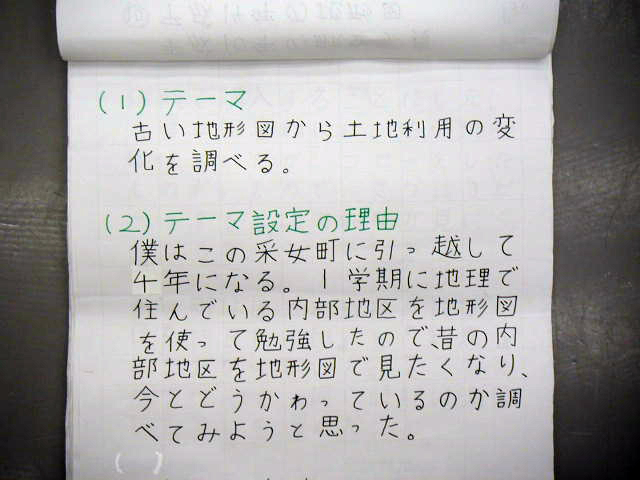 (1)テーマ
古い地形図から土地利用の変
化を調べる。
(2)テーマ設定の理由
僕はこの采女町に引っ越して
4年になる。1学期に地理で
住んでいる内部地区を地形図
を使って勉強したので、昔の内
部地区を地形図で見たくなり、
今とどうかわっているのか調
べてみようと思った。